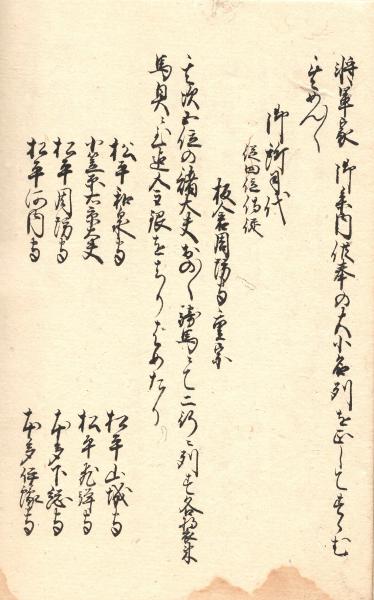 将軍家御参内供奉の大小名列を正してすゝむ
其めん〳〵
御所司代
従四位侍従
板倉周防守重宗
其次五位の諸大夫おの〳〵騎馬にて二行に列す各装束
馬具に至迄人主銀をちりはめたり
松平和泉守
松平山城守
小笠原右京大夫
松平飛騨守
松平周防守
本多下総守
松平河内守
本多伊勢守